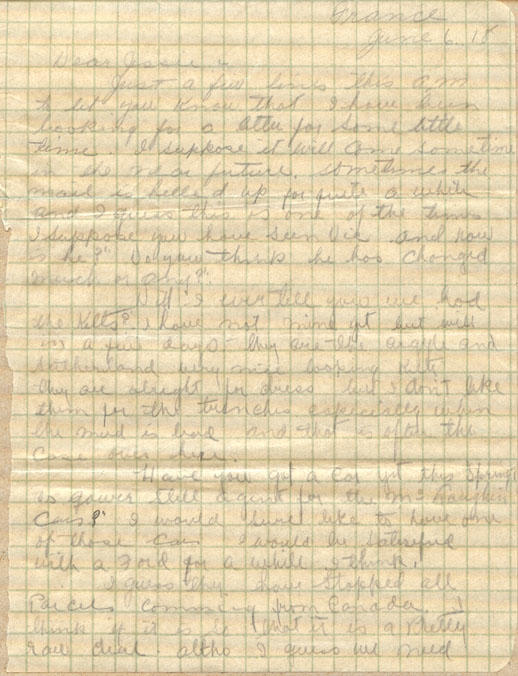 France
June 6. 18
Dear Jessie :
Just a few lines this a.m
to let you know that I have been
looking for a letter for some little
time I suppose it will come sometime
in the near future. sometimes the
mail is helled up for quite a while
and I guess this is one of the times
I suppose you have seen Vic and how
is he?" Do you think he has changed
much or any?"
Did I ever tell you we had
the Kilts? I have not mine yet but will
in a few days - they are the argyle and
Sutherland very nice looking Kilts
they are alright for dress but I don't like
them for the trenches especially when
the mud is bad and that is often the
case over here.
Have you got a Car yet this Spring
is still agent for the McLaughlin
Cars?" I would sure like to have one
of those Cars I would be satisfied
with a Ford for a while I think.
I guess they have stopped all
Parcels comming from Canada. I
think if it is so that it is a Pretty
raw deal. altho I guess we need